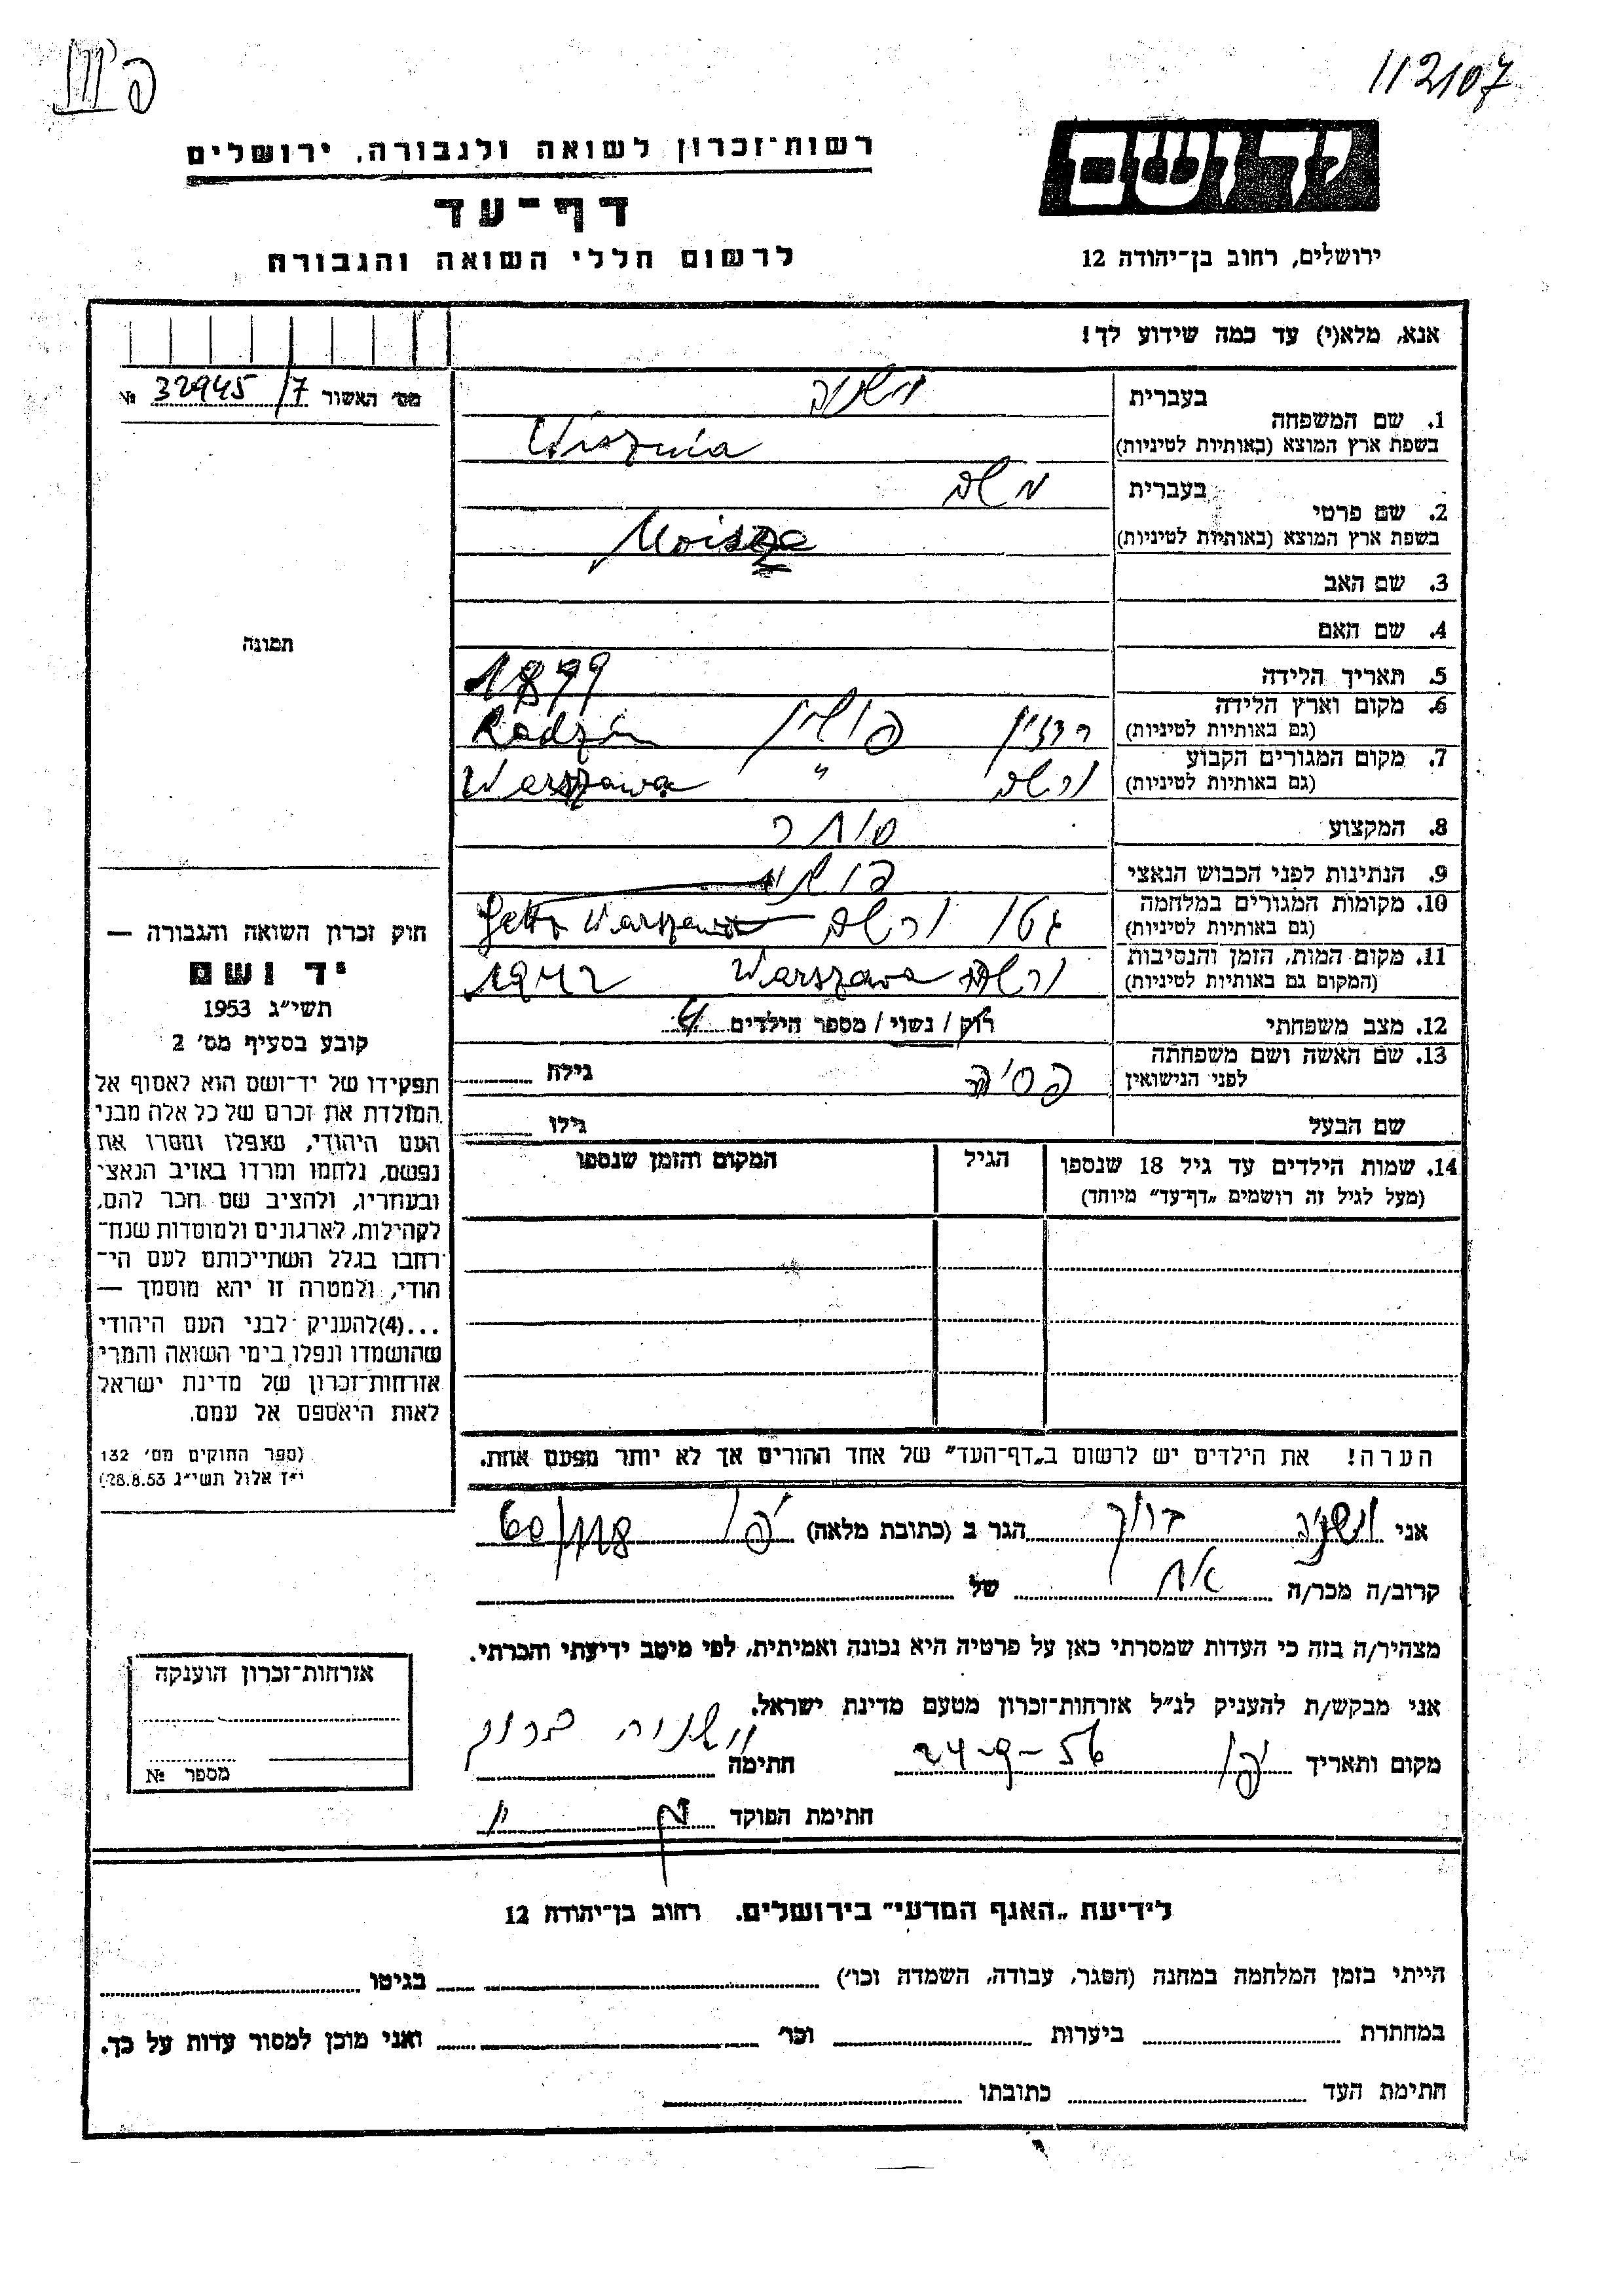 112107
יד ושם
רשות־זכרון לשואה ולגבורה, ירושלים
דף־עד
לרשום חללי השואה והגבורה
ירושלים, רחוב בן־יהודה 12
אנא, מלא(י) עד כמה שידוע לך!
מס׳ האשור 32945/7 №
בעברית
1. שם המשפחה
בשפת ארץ המוצא (באותיות לטיניות) Wisznia
בעברית משה
2. שם פרטי
בשפת ארץ המוצא (באותיות לטיניות)
3. שם האב
4. שם האם
תמונה
5. תאריך הלידה 1899
6. מקום וארץ הלידה
(גם באותיות לטיניות) רדזין פולין Radzin
7. מקום המגורים הקבוע
(גם באותיות לטיניות) ורשה " Warszawa
8. המקצוע סוחר
9. הנתינות לפני הכבוש הנאצי
10. מקומות המגורים במלחמה
(גם באותיות לטיניות) גטו ורשה Getto Warszawa
11. מקום המות, הזמן והנסיבות
(המקום גם באותיות לטיניות) ורשה Warszawa 1942
12. מצב משפחתי רוק / נשוי / מספר הילדים 4
13. שם האשה ושם משפחתה
לפני הנישואין גילה
שם הבעל גילו
14. שמות הילדים עד גיל 18 שנספו הגיל המקום והזמן שנספו
(מעל לגיל זה רושמים „דף־עד" מיוחד)
חוק זכרון השואה והגבורה —
יד ושם
תשי״ג 1953
קובע בסעיף מס׳ 2
תפקידו של יד־ושם הוא לאסוף אל
המולדת את זכרם של כל אלה מבני
העם היהודי, שנפלו ומסרו את
נפשם, נלחמו ומרדו באויב הנאצי
ובעוזריו, ולהציב שם וזכר להם,
לקהילות, לארגונים ולמוסדות שנח־
רבו בגלל השתייכותם לעם הי־
הודי, ולמטרה זו יהא מוסמך —
...(4) להעניק לבני העם היהודי
שהושמדו ונפלו בימי השואה והמרי
אזרחות־זכרון של מדינת ישראל
לאות היאספם אל עמם.
(ספר החוקים מס׳ 132
י״ז אלול תשי״ג 28.8.53)
הערה! את הילדים יש לרשום ב„דף־העד" של אחד ההורים אך לא יותר מפעם אחת.
אני ברוך הגר ב (כתובת מלאה) יפו 60/118
קרוב/ה מכר/ה אח של
מצהיר/ה בזה כי העדות שמסרתי כאן על פרטיה היא נכונה ואמיתית, לפי מיטב ידיעתי והכרתי.
אני מבקש/ת להעניק לנ״ל אזרחות־זכרון מטעם מדינת ישראל.
מקום ותאריך יפו 24-9-56 חתימה ושניה ברוך
חתימת הפוקד
אזרחות־זכרון הוענקה
מספר №
לידיעת „האגף המדעי" בירושלים. רחוב בן־יהודה 12
הייתי בזמן המלחמה במחנה (הסגר, עבודה, השמדה וכו׳) בגיטו
במחתרת ביערות וכו׳ ואני מוכן למסור עדות על כך.
חתימת העד כתובתו